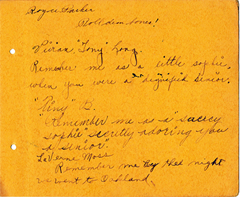 Royce Parker
Vivian "Tony" Long
Remember me as a little sophie,
when you were a dignified senior.
"Tiny" B.
"Remember me as a "saucy
sophie" secretly adoring you
a senior.
LaVerne Moss
Remember me by the night
we went to Ashland.